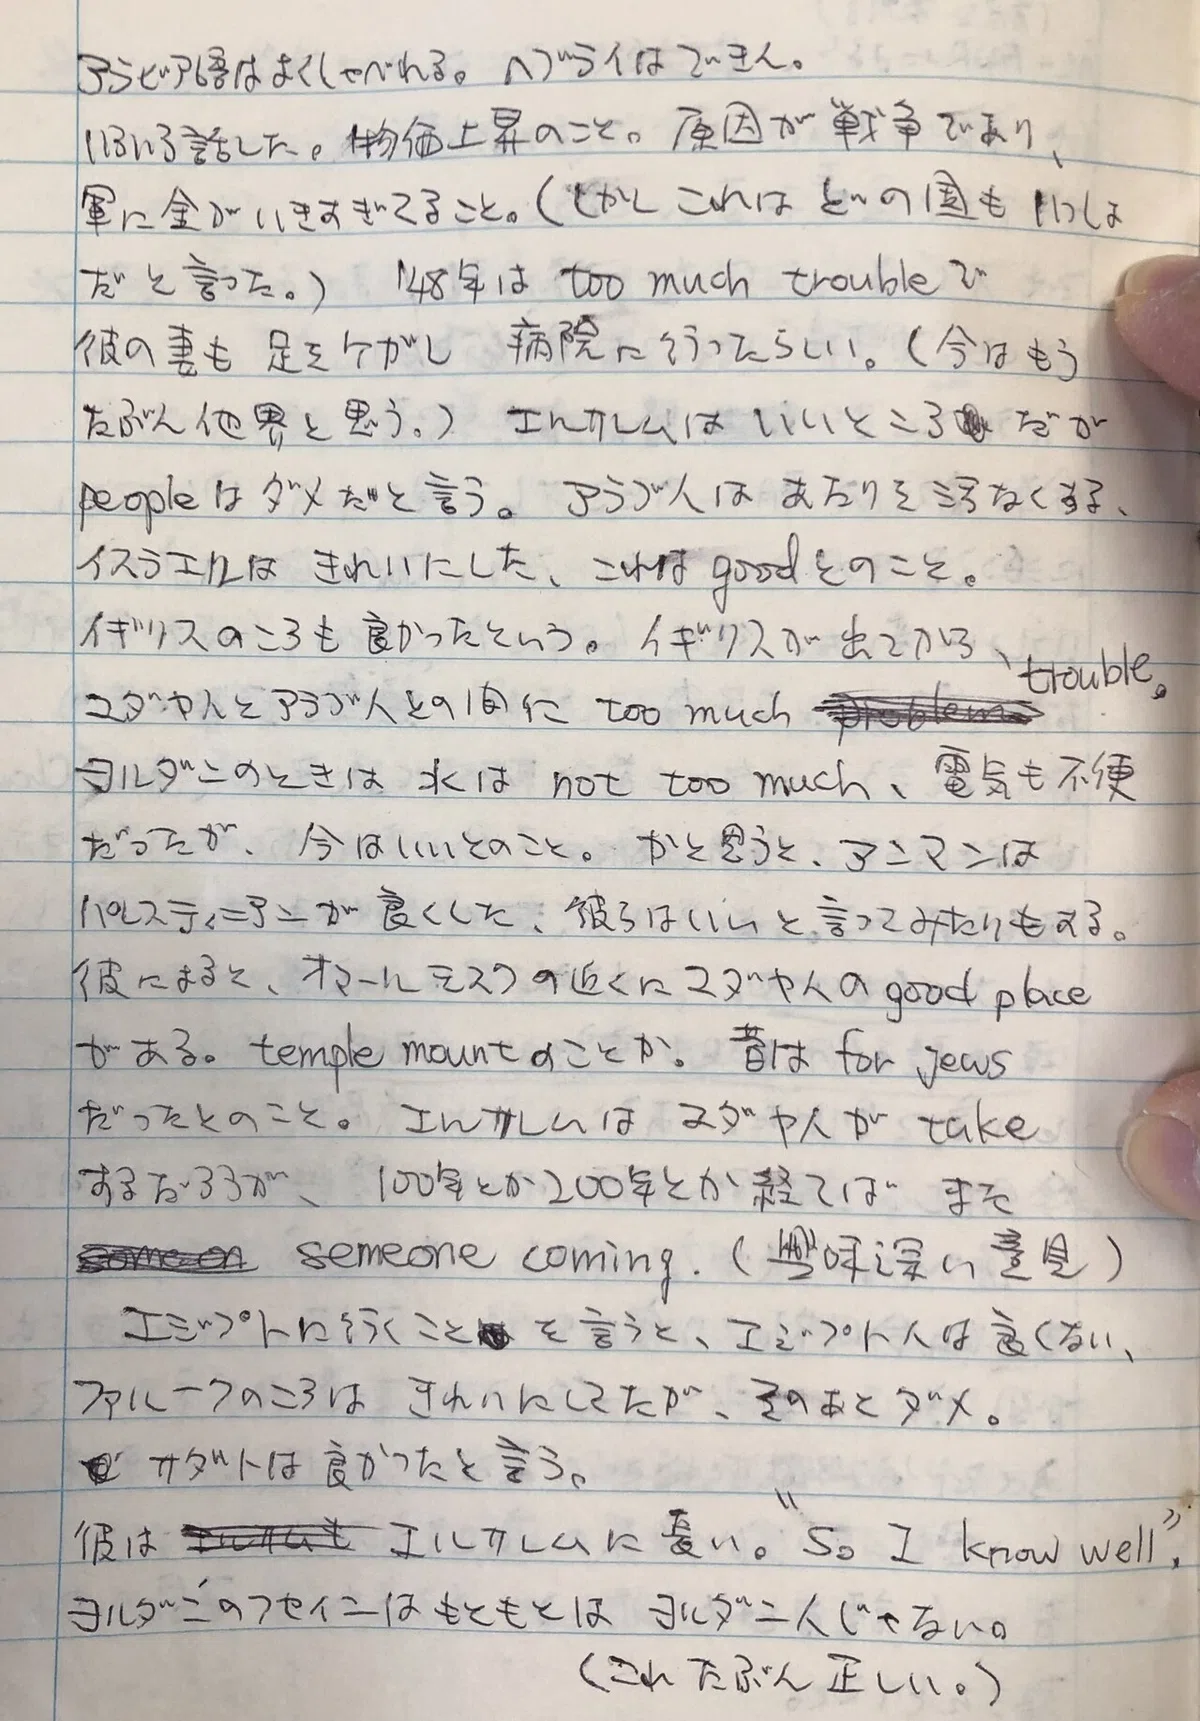 アラビア語はよくしゃべれる。ヘブライはできん。
いろいろ話した。物価上昇のこと。原因が戦争であり、
軍に金がいきすぎてること。(しかしこれはどの国もいっしょ
だと言った。) '48年は too much trouble で
彼の妻も足をケガし 病院に行ったらしい。(今はもう
たぶん他界と思う。) エルサレムはいいところだが
peopleはダメだと言う。アラブ人はあたりを汚なくする、
イスラエルはきれいにした、これはgoodとのこと。
イギリスのころも良かったという。イギリスが出てから、
ユダヤ人とアラブ人との間に too much problem trouble。
ヨルダンのときは水は not too much、電気も不便
だったが、今はいいとのこと。かと思うと、アンマンは
パレスティニアンが良くした、彼らはいいと言ってみたりもする。
彼によると、オマールモスクの近くにユダヤ人のgood place
がある。temple mountのことか。昔は for jews
だったとのこと。エルサレムはユダヤ人が take
するだろうが、100年とか200年とか経てば また
someon semeone coming.(興味深い意見)
エジプトに行くことを言うと、エジプト人は良くない、
ファルークのころはきれいにしてたが、そのあとダメ。
サダトは良かったと言う。
彼は エルサレムも エルサレムに長い。"So I know well".
ヨルダンのフセインはもともとは ヨルダン人じゃない。
(これたぶん正しい。)